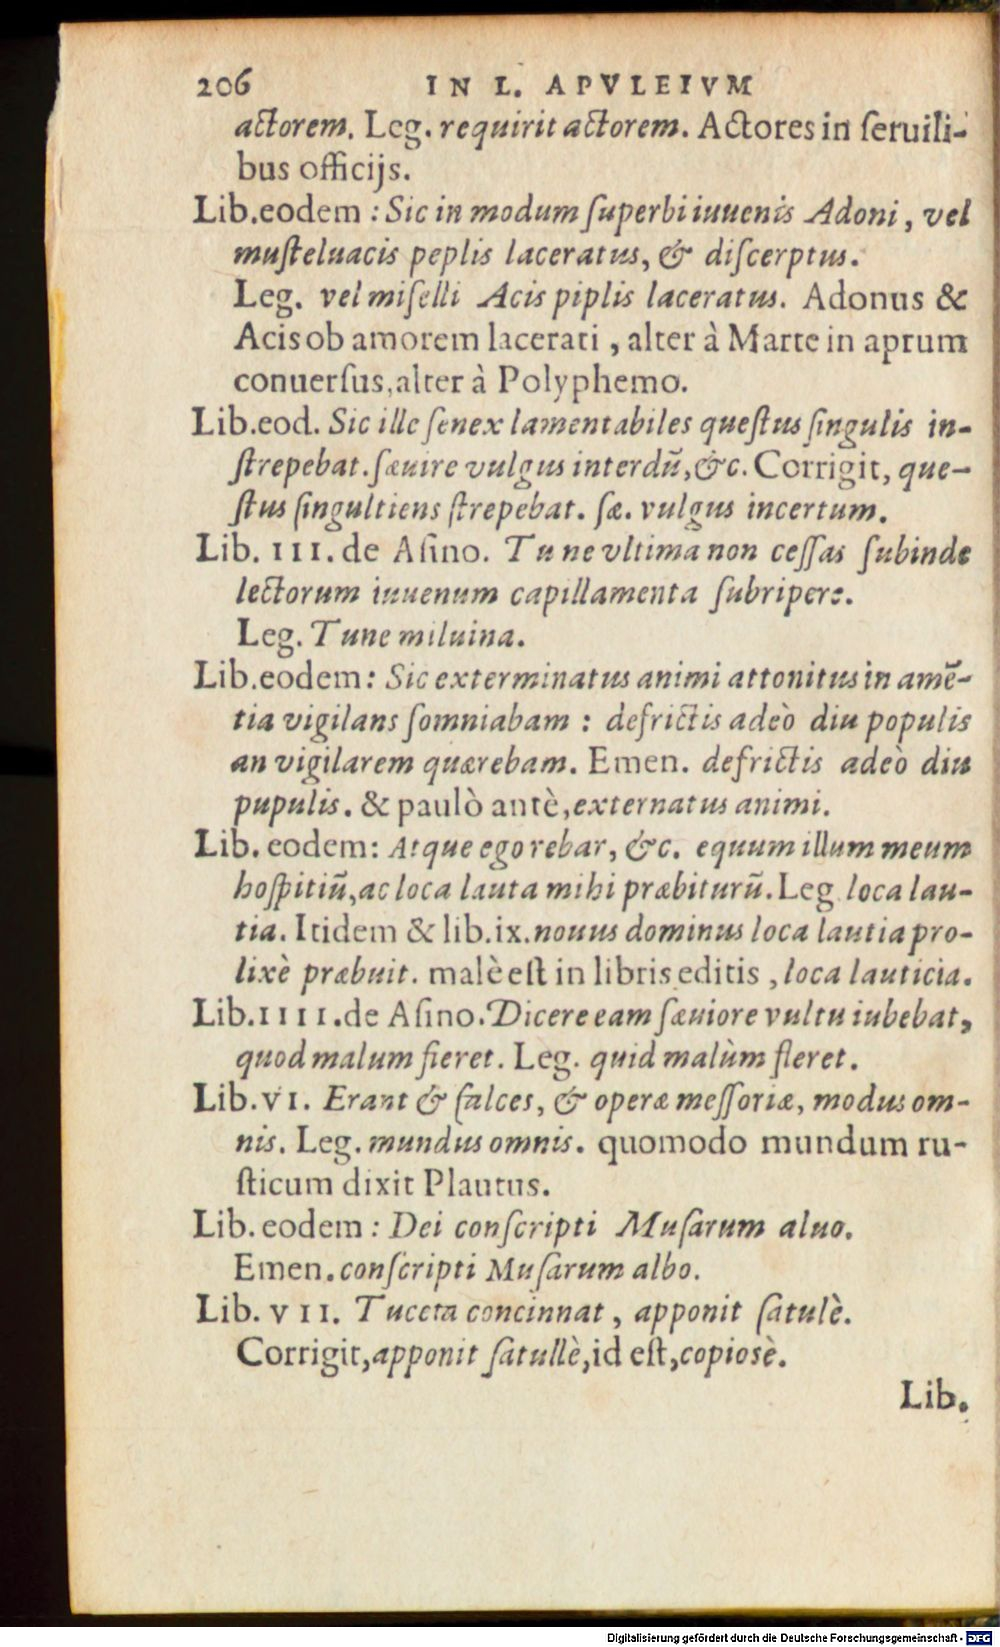 206 IN L. APVLEIVM
actorem. Leg. requirit actorem. Actores in ſeruili-
bus officijs.
Lib.eodem : Sic in modum ſuperbi iuuenis Adoni, vel
muſteluacis peplis laceratus, & diſcerptus.
Leg. vel miſelli Acis piplis laceratus. Adonus &
Acis ob amorem lacerati , alter à Marte in aprum
conuerſus,alter à Polyphemo.
Lib.eod. Sic ille ſenex lamentabiles queſtus ſingulis in-
ſtrepebat.ſæuire vulgus interdū,&c. Corrigit, que-
ſtus ſingultiens ſtrepebat. ſæ. vulgus incertum.
Lib. III. de Aſino. Tu ne vltima non ceſſas ſubinde
lectorum iuuenum capillamenta ſubripere.
Leg. Tune miluina.
Lib.eodem: Sic exterminatus animi attonitus in amē-
tia vigilans ſomniabam : defrictis adeò diu populis
an vigilarem quærebam. Emen. defrictis adeò diu
pupulis. & paulò antè,externatus animi.
Lib. eodem: Atque ego rebar, &c. equum illum meum
hoſpitiū,ac loca lauta mihi præbiturū. Leg. loca lau-
tia. Itidem & lib.ix.nouus dominus loca lautia pro-
lixè præbuit. malè eſt in libris editis , loca lauticia.
Lib.IIII.de Aſino.Dicere eam ſæuiore vultu iubebat,
quod malum fieret. Leg. quid malùm fleret.
Lib.VI. Erant & falces, & operæ meſſoriæ, modus om-
nis. Leg. mundus omnis. quomodo mundum ru-
ſticum dixit Plautus.
Lib. eodem : Dei conſcripti Muſarum aluo.
Emen.conſcripti Muſarum albo.
Lib. VII. Tuceta concinnat , apponit ſatulè.
Corrigit,apponit ſatullè,id eſt,copiosè.
Lib.
Digitalisierung gefördert durch die Deutsche Forschungsgemeinschaft - DFG